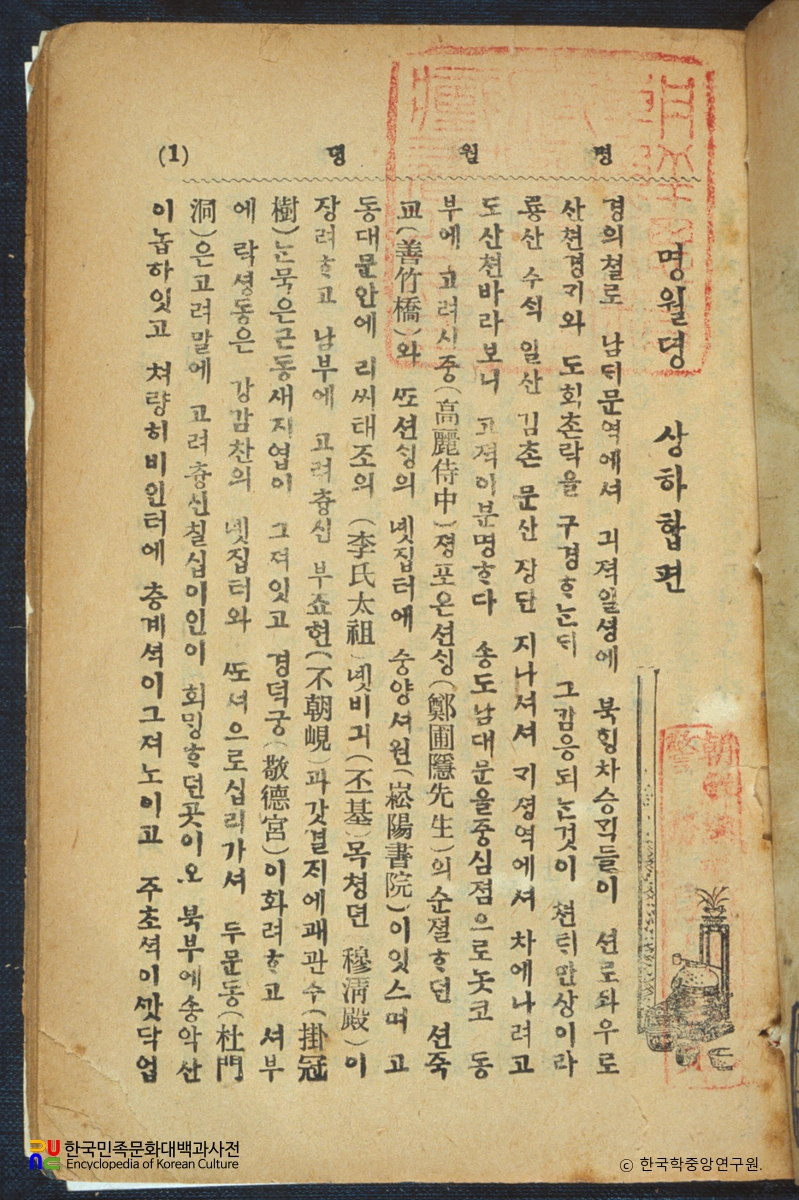 명월뎡 (1)
명월뎡 상하합편
경의철로 남ᄃᆡ문역에셔 긔젹일셩에 북ᄒᆡᆼ차승ᄀᆡᆨ들이 션로좌우로
산쳔경ᄀᆡ와 도회촌락을 구경ᄒᆞᄂᆞᆫᄃᆡ 그감응되ᄂᆞᆫ것이 쳔ᄐᆡ만상이라
룡산 수ᄉᆡᆨ 일산 김촌 문산 장단 지나셔셔 ᄀᆡ셩역에셔 차에나려고
도산쳔바라보니 고젹이분명ᄒᆞ다 송도남대문을중심점으로놋코 동
부에 고려시중(高麗侍中)졍포은션ᄉᆡᆼ(鄭圃隱先生)의순졀ᄒᆞ던 션죽
교(善竹橋)와 ᄯᅩ션ᄉᆡᆼ의 녯집터에 숭양셔원(崧陽書院)이잇스며 고
동대문안에 리씨태조의 (李氏太祖)녯비긔(丕基)목쳥뎐 穆淸殿)이
장려ᄒᆞ고 남부에 고려츙신 부죠현(不朝峴)과갓결지에괘관수(掛冠
樹)ᄂᆞᆫ묵은근동새지엽이 그져잇고 경덕궁(敬德宮)이화려ᄒᆞ고 셔부
에 락셩동은 강감찬의 녯집터와 ᄯᅩ셔으로십리가셔 두문동(杜門
洞)은고려말에 고려츙신칠십이인이 회ᄆᆡᆼᄒᆞ던곳이오 북부에송악산
이놉하잇고 쳐량히비인터에 층계셕이그져노이고 주초셕이ᄭᅡᆺ닥업
한국민족문화대백과사전
Encyclopedia of Korean Culture
© 한국학중앙연구원.